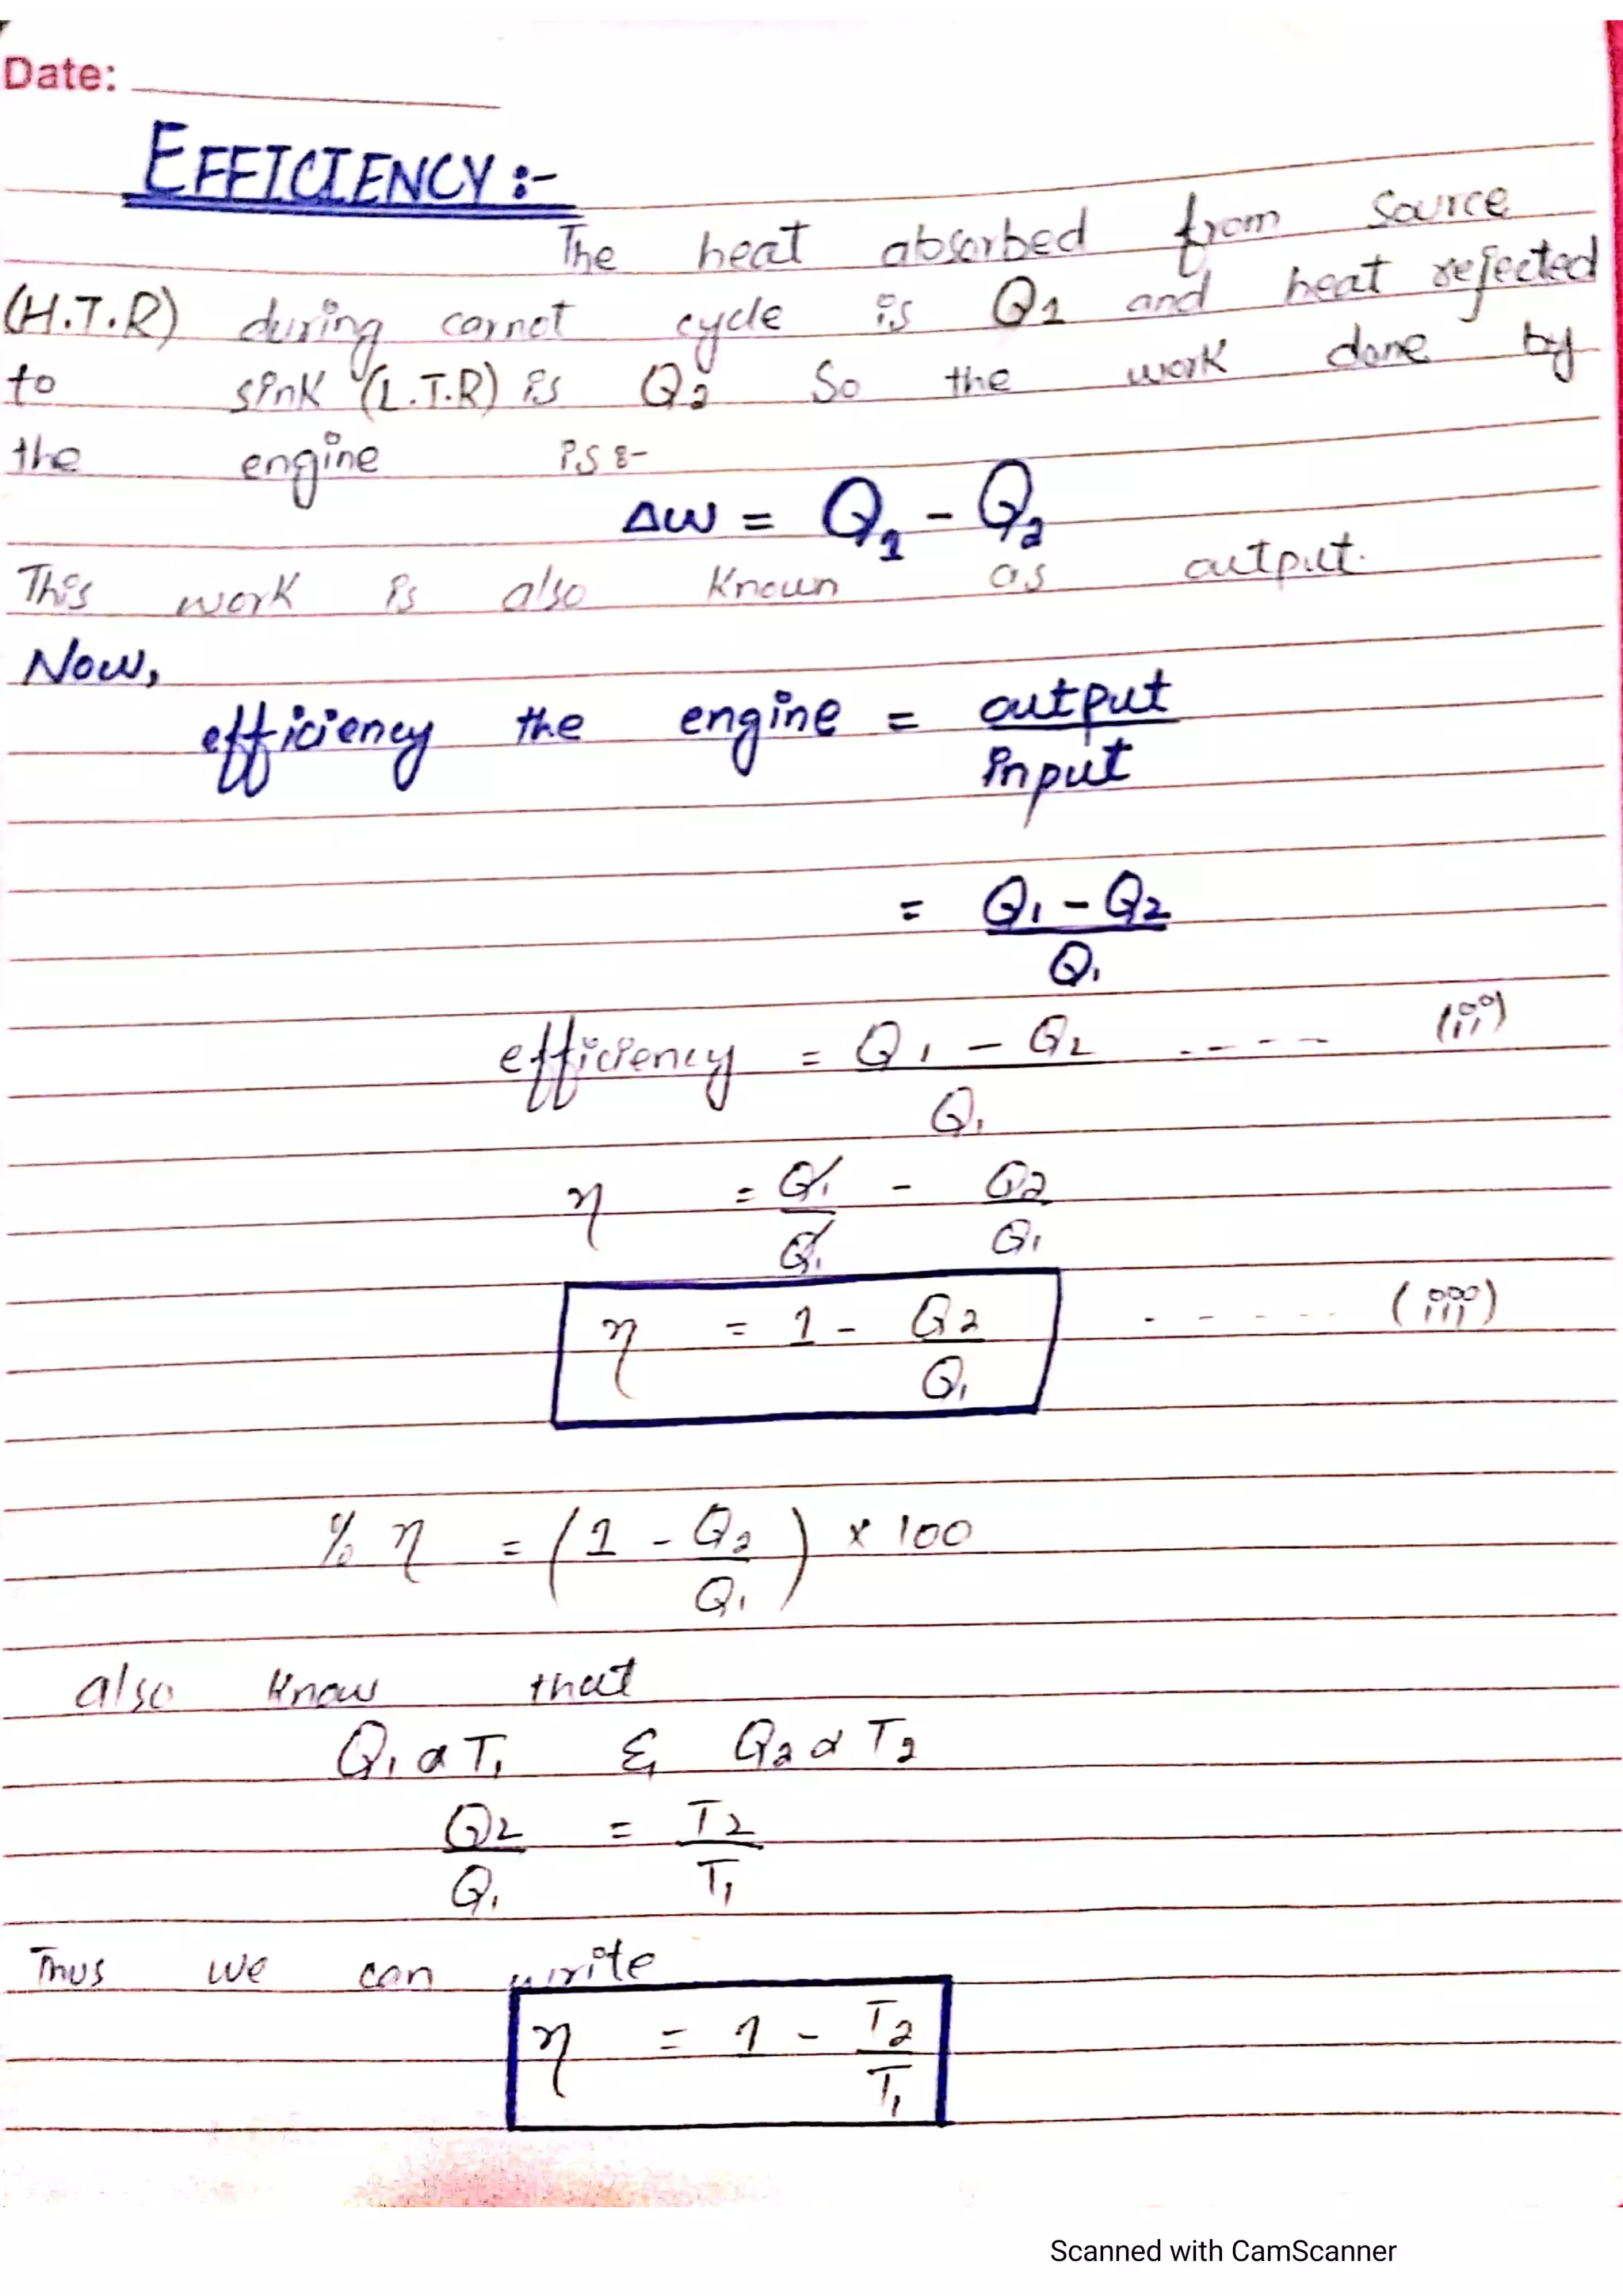 Date:
EFFICIENCY :-
The heat absorbed from Source
(H.T.R) during carnot cycle is Q1 and heat rejected
to sink (L.T.R) is Q2 So the work done by
the engine is :-
Δw = Q1 - Q2
This work is also Known as output.
Now,
efficiency the engine = output / input
= Q1 - Q2 / Q1
efficiency = Q1 - Q2 / Q1 ---- (ii)
η = Q1 / Q1 - Q2 / Q1
η = 1 - Q2 / Q1 ----- (iii)
% η = (1 - Q2 / Q1) × 100
also Know that
Q1 α T1 & Q2 α T2
Q2 / Q1 = T2 / T1
Thus we can write
η = 1 - T2 / T1
Scanned with CamScanner